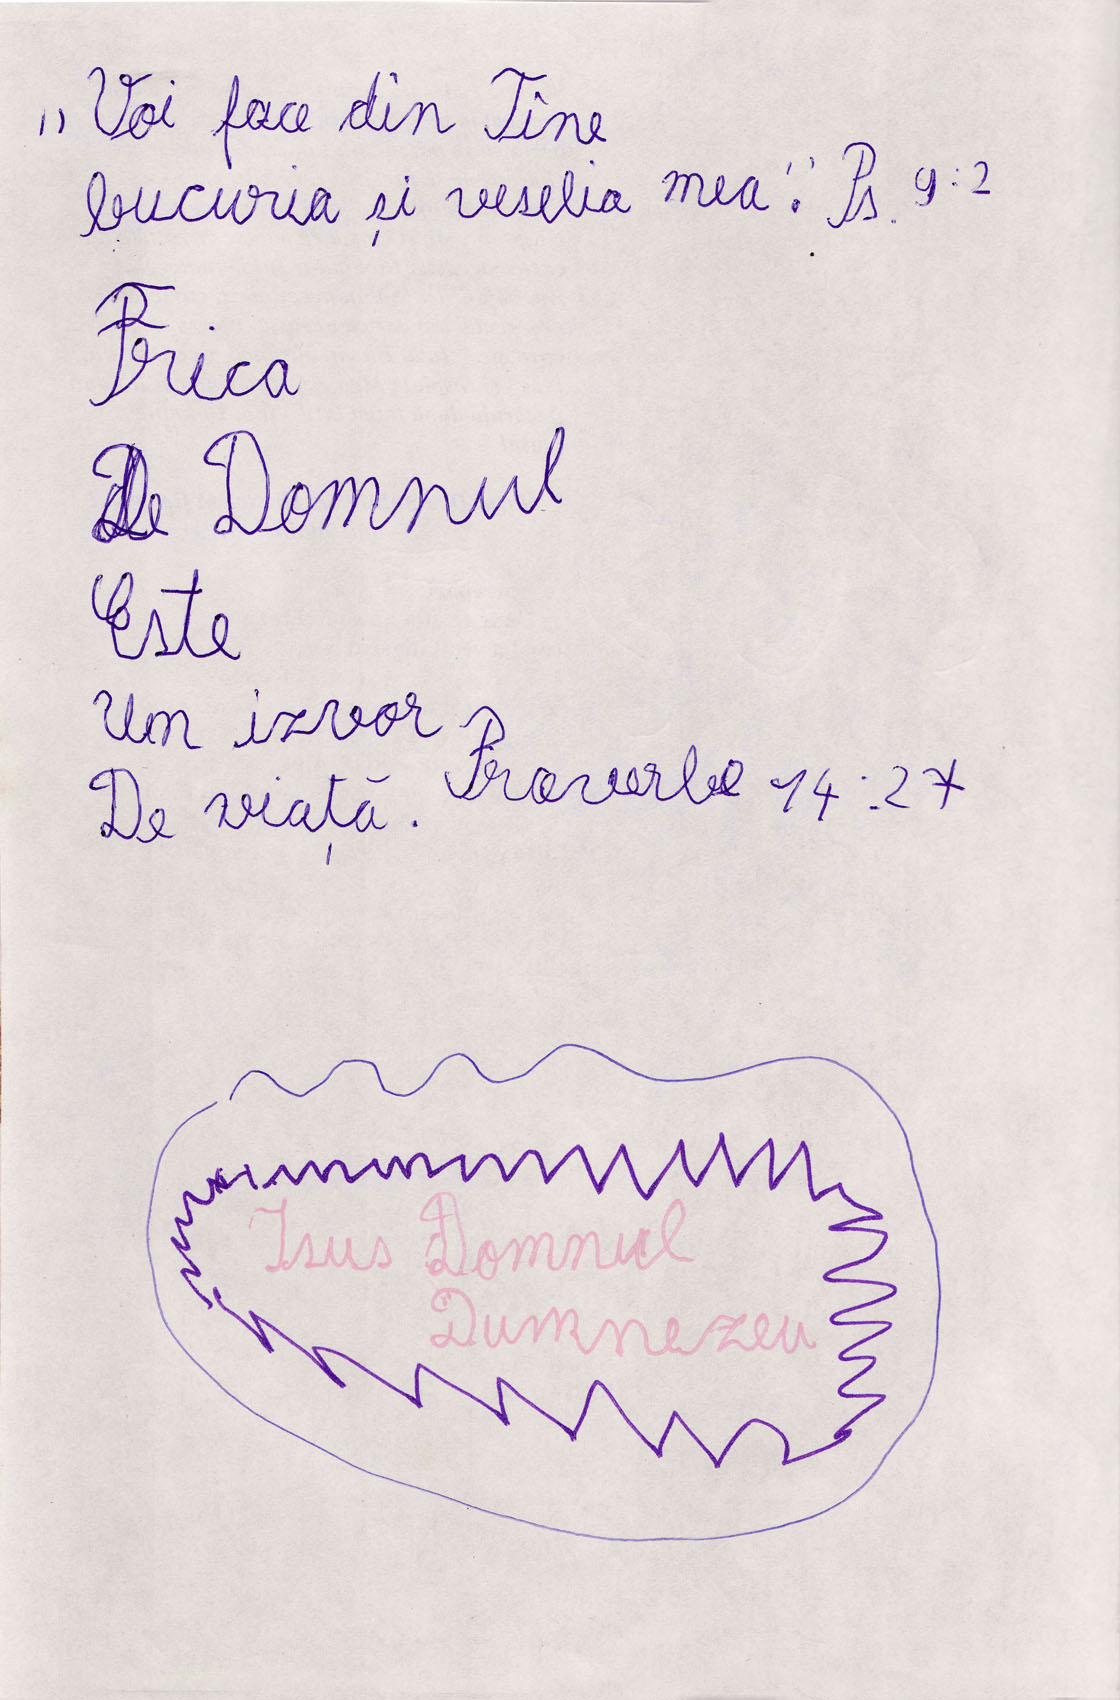 „Voi face din Tine
bucuria și veselia mea". Ps. 9:2
Frica
De Domnul
Este
Un izvor
De viață. Proverbe 14:27
Isus Domnul
Dumnezeu